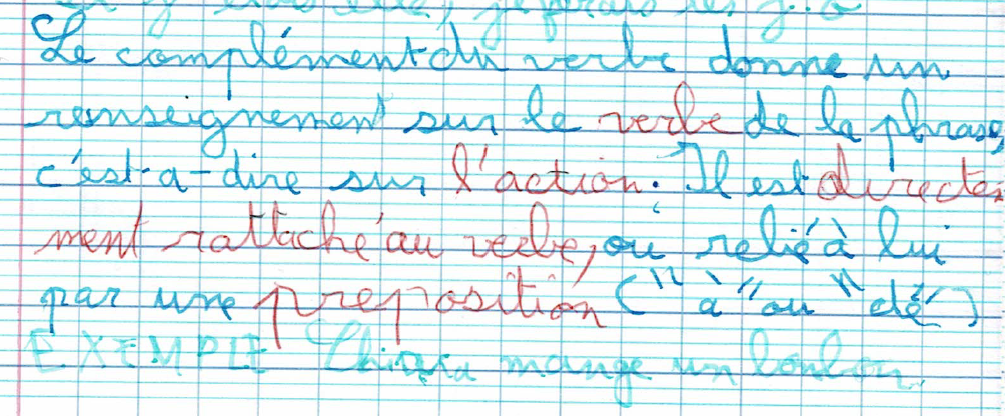 Le complément du verbe donne un
renseignement sur le verbe de la phrase,
c'est-a-dire sur l'action. Il est directe-
ment rattaché au verbe, ou relié à lui
par une preposition ("à" ou "dé")
EXEMPLE mange un bonbon.